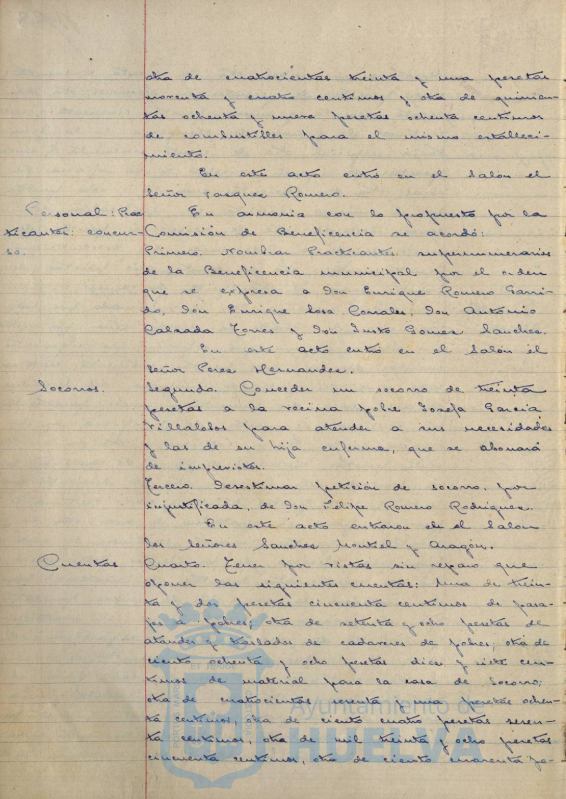 otra de cuatrocientas treinta y una pesetas
noventa y cuatro centimos y otra de quinien-
tas ochenta y nueve pesetas ochenta centimos
de combustibles para el mismo estableci-
miento.
En este acto entró en el Salon el
Señor Vasquez Romero.
Personal: Prac
ticantes: concur-
so.
En armonia con lo propuesto por la
Comisión de Beneficencia se acordó:
Primero. Nombrar Practicantes supernumerarios
de la Beneficencia municipal por el orden
que se expresa a don Enrique Romero Garri-
do, don Enrique Sosa Corrales, don Antonio
Calzada Torres y don Justo Gomez Sanchez.
En este acto entró en el Salón el
Señor Perez Hernandez.
Socorros.
Segundo. Conceder un socorro de treinta
pesetas a la vecina pobre Josefa Garcia
Villalobos para atender a sus necesidades
y las de su hija enferma, que se abonará
de imprevistos.
Tercero. Desestimar petición de socorro, por
injustificada, de don Felipe Romero Rodriguez.
En este acto entraron en el Salon
los Señores Sanchez Montiel y Aragón.
Cuentas
Cuarto. Tener por vistas sin reparo que
oponer las siguientes cuentas: Una de trein-
ta y dos pesetas cincuenta centimos de pasa-
jes a pobres; otra de setenta y ocho pesetas de
ataudes y traslados de cadaveres de pobres; otra de
ciento ochenta y ocho pesetas diez y siete cen-
timos de material para la casa de Socorro;
otra de cuatrocientas y pesetas ochen-
ta centimos, otra de ciento cuatro pesetas
ta centimos, otra de mil treinta y ocho pesetas
cincuenta centimos, otra de ciento cuarenta pe-
Ayuntamiento de
HUELVA